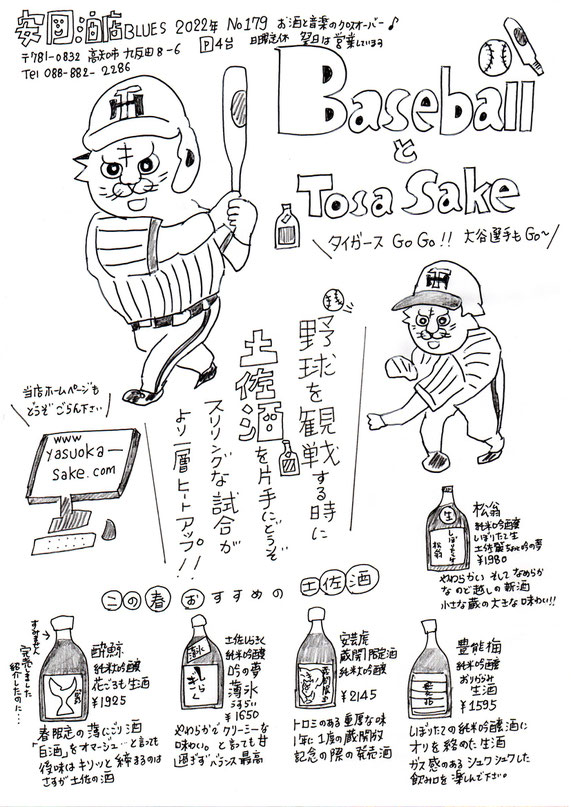 安岡酒店BLUES 2022年 No179 お酒と音楽のクロスオーバー♪
〒781-0832 高知市九反田8-6 P4台 日曜定休 翌日は営業しています
Tel 088-882-2286
Baseball
と
Tosa Sake
タイガース Go Go!! 大谷選手もGo〜
野球を観戦する時に
土佐酒を片手にどうぞ
スリリングな試合が
より一層ヒートアップ!!
当店ホームページも
どうぞごらん下さい
www
yasuoka-
sake.com
松翁
純米吟醸
しぼりたて生
土佐麗
吟の夢
¥1980
やわらかい そして なめらか
なので越しの新酒
小さな蔵の大きな味わい!!
生
しぼりたて
松翁
この春おすすめの土佐酒
すみません
完売しました
紹介したのに…
酔鯨
純米吟醸
花ごろも生酒
¥1925
春限定の薄にごり酒
「白酒」をオマージュ…と言っても
後味はキリッと締まるのは
さすが土佐の酒
土佐しらぎく
純米吟醸
吟の夢
薄氷
うすらい
¥1650
やわらかでクリーミーな
味わい。と言っても甘
過ぎずバランス最高
安芸虎
蔵開限定酒
純米大吟醸
¥2145
トロミのある重厚な味
1年に1度の蔵開放
記念の際の発売酒
豊能梅
純米吟醸
おりがらみ
生酒
¥1595
しぼりたての純米吟醸酒に
オリを絡めた生酒
ガス感のあるシュワシュワした
飲み口を楽しんで下さい。